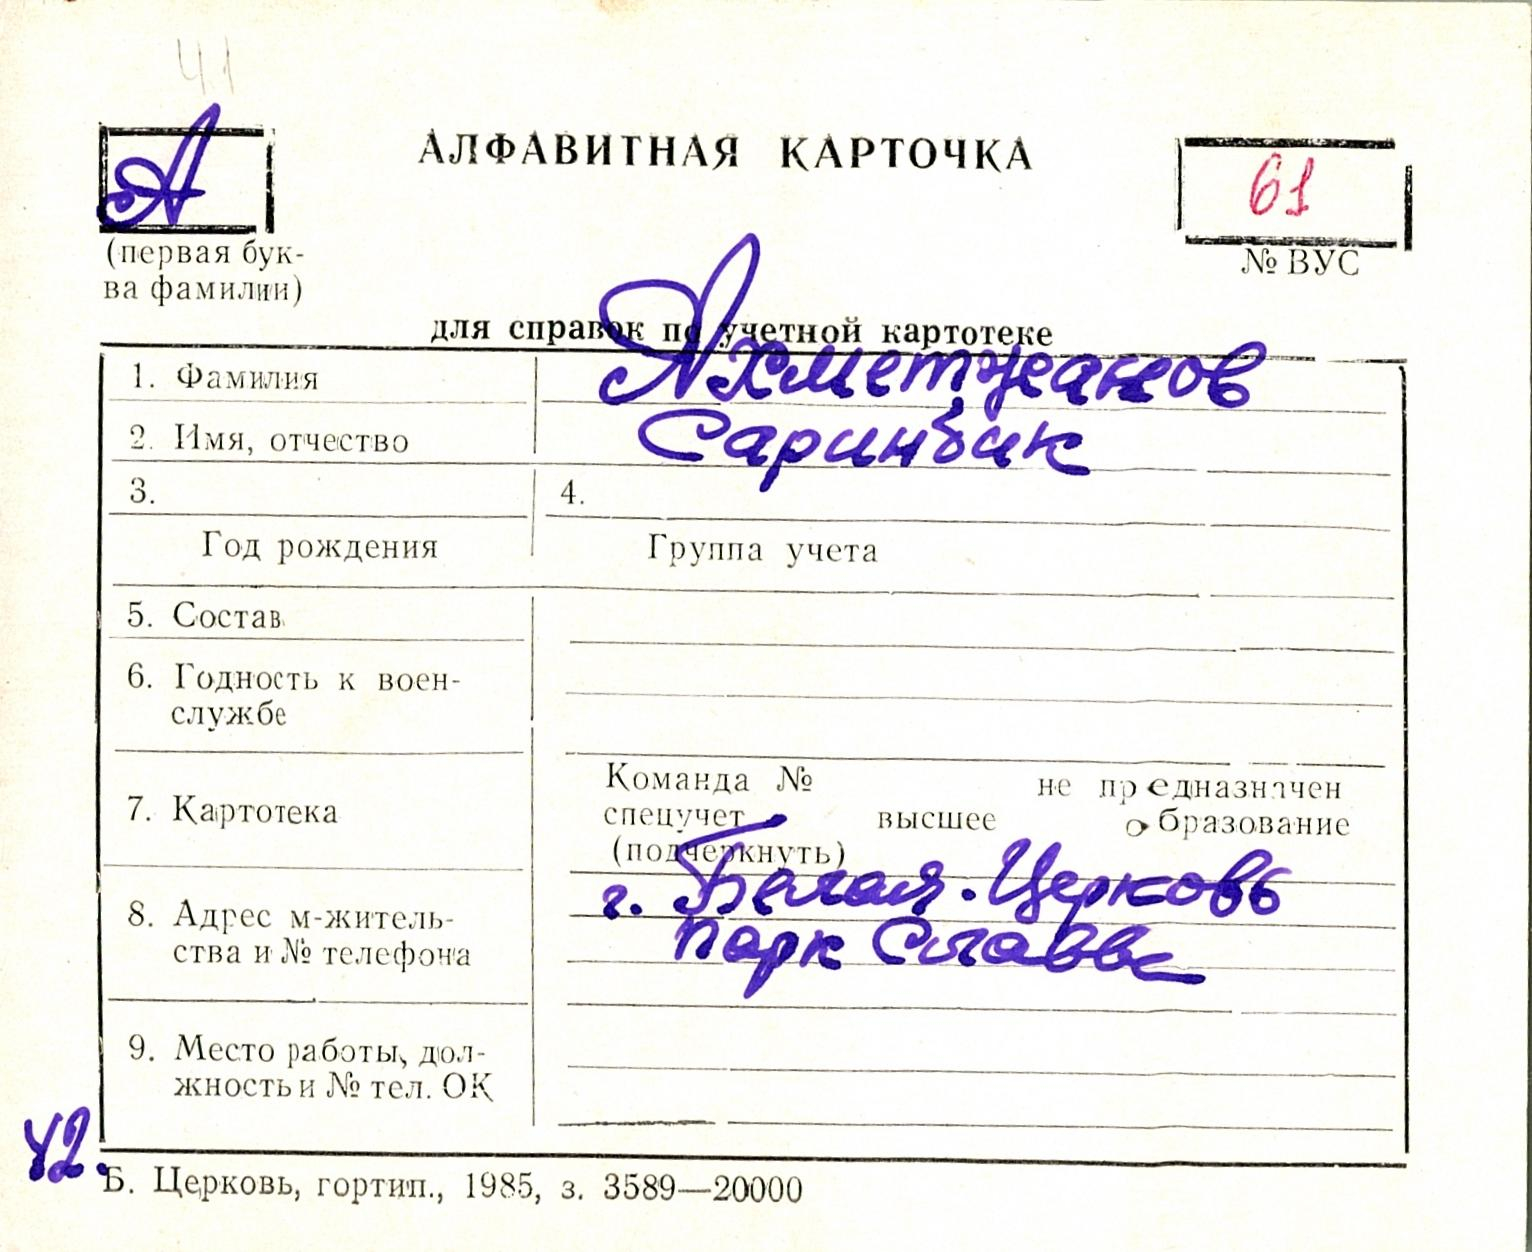 41
А
АЛФАВИТНАЯ КАРТОЧКА
61
(первая бук-
ва фамилии)
№ ВУС
для справок по учетной картотеке
1. Фамилия
Ахметжанов
2. Имя, отчество
Саринбик
3.
4.
Год рождения
Группа учета
5. Состав
6. Годность к воен-
службе
7. Картотека
Команда № не предназначен
спецучет высшее образование
(подчеркнуть)
8. Адрес м-житель-
ства и № телефона
г. Белая-Церковь
парк Славы
9. Место работы, дол-
жность и № тел. ОК
42.
Б. Церковь, гортип., 1985, з. 3589—20000